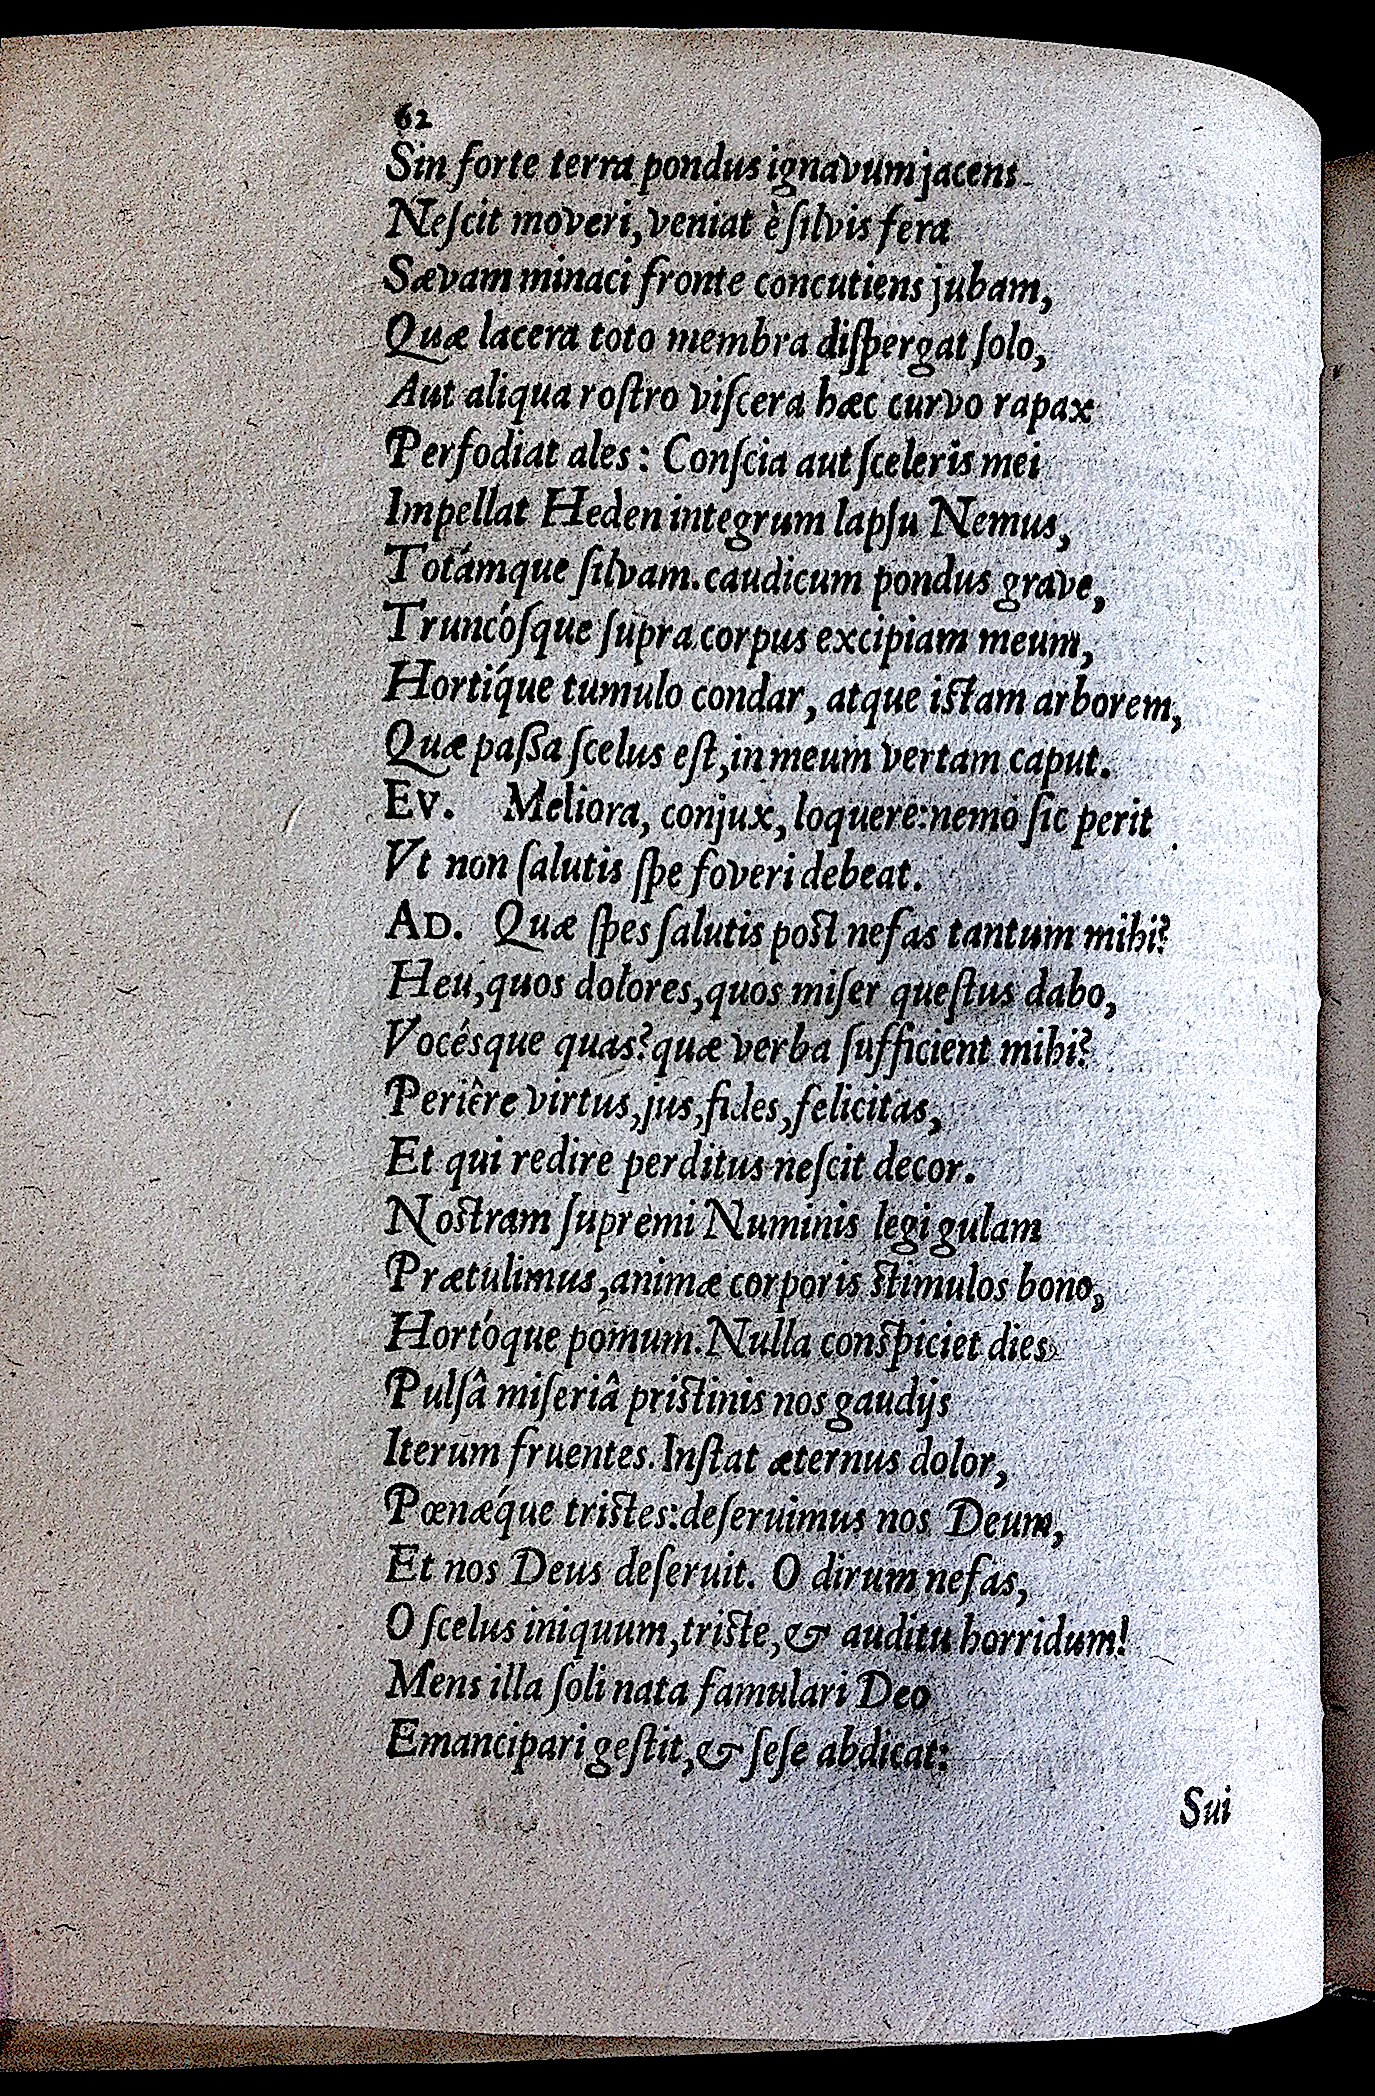 62
Sin forte terra pondus ignavum jacens
Neſcit moveri, veniat è ſilvis fera
Sævam minaci fronte concutiens jubam,
Quæ lacera toto membra diſpergat ſolo,
Aut aliqua roſtro viſcera hæc curvo rapax
Perfodiat ales: Conſcia aut ſceleris mei
Impellat Heden integrum lapſu Nemus,
Totámque ſilvam. caudicum pondus grave,
Truncóſque ſupra corpus excipiam meum,
Hortíque tumulo condar, atque iſtam arborem,
Quæ paßa ſcelus eſt, in meum vertam caput.
EV. Meliora, conjux, loquere: nemo ſic perit
Vt non ſalutis ſpe foveri debeat.
AD. Quæ ſpes ſalutis poſt nefas tantum mihi?
Heu, quos dolores, quos miſer queſtus dabo,
Vocésque quas? quæ verba ſufficient mihi?
Periêre virtus, jus, fides, felicitas,
Et qui redire perditus neſcit decor.
Noſtram ſupremi Numinis legi gulam
Prætulimus, animæ corporis ſtimulos bono,
Hortóque pomum. Nulla conſpiciet dies
Pulſâ miſeriâ priſtinis nos gaudijs
Iterum fruentes. Inſtat æternus dolor,
Pœnǽque triſtes: deſeruimus nos Deum,
Et nos Deus deſeruit. O dirum nefas,
O ſcelus iniquum, triſte, & auditu horridum!
Mens illa ſoli nata famulari Deo
Emancipari geſtit, & ſeſe abdicat:
Sui